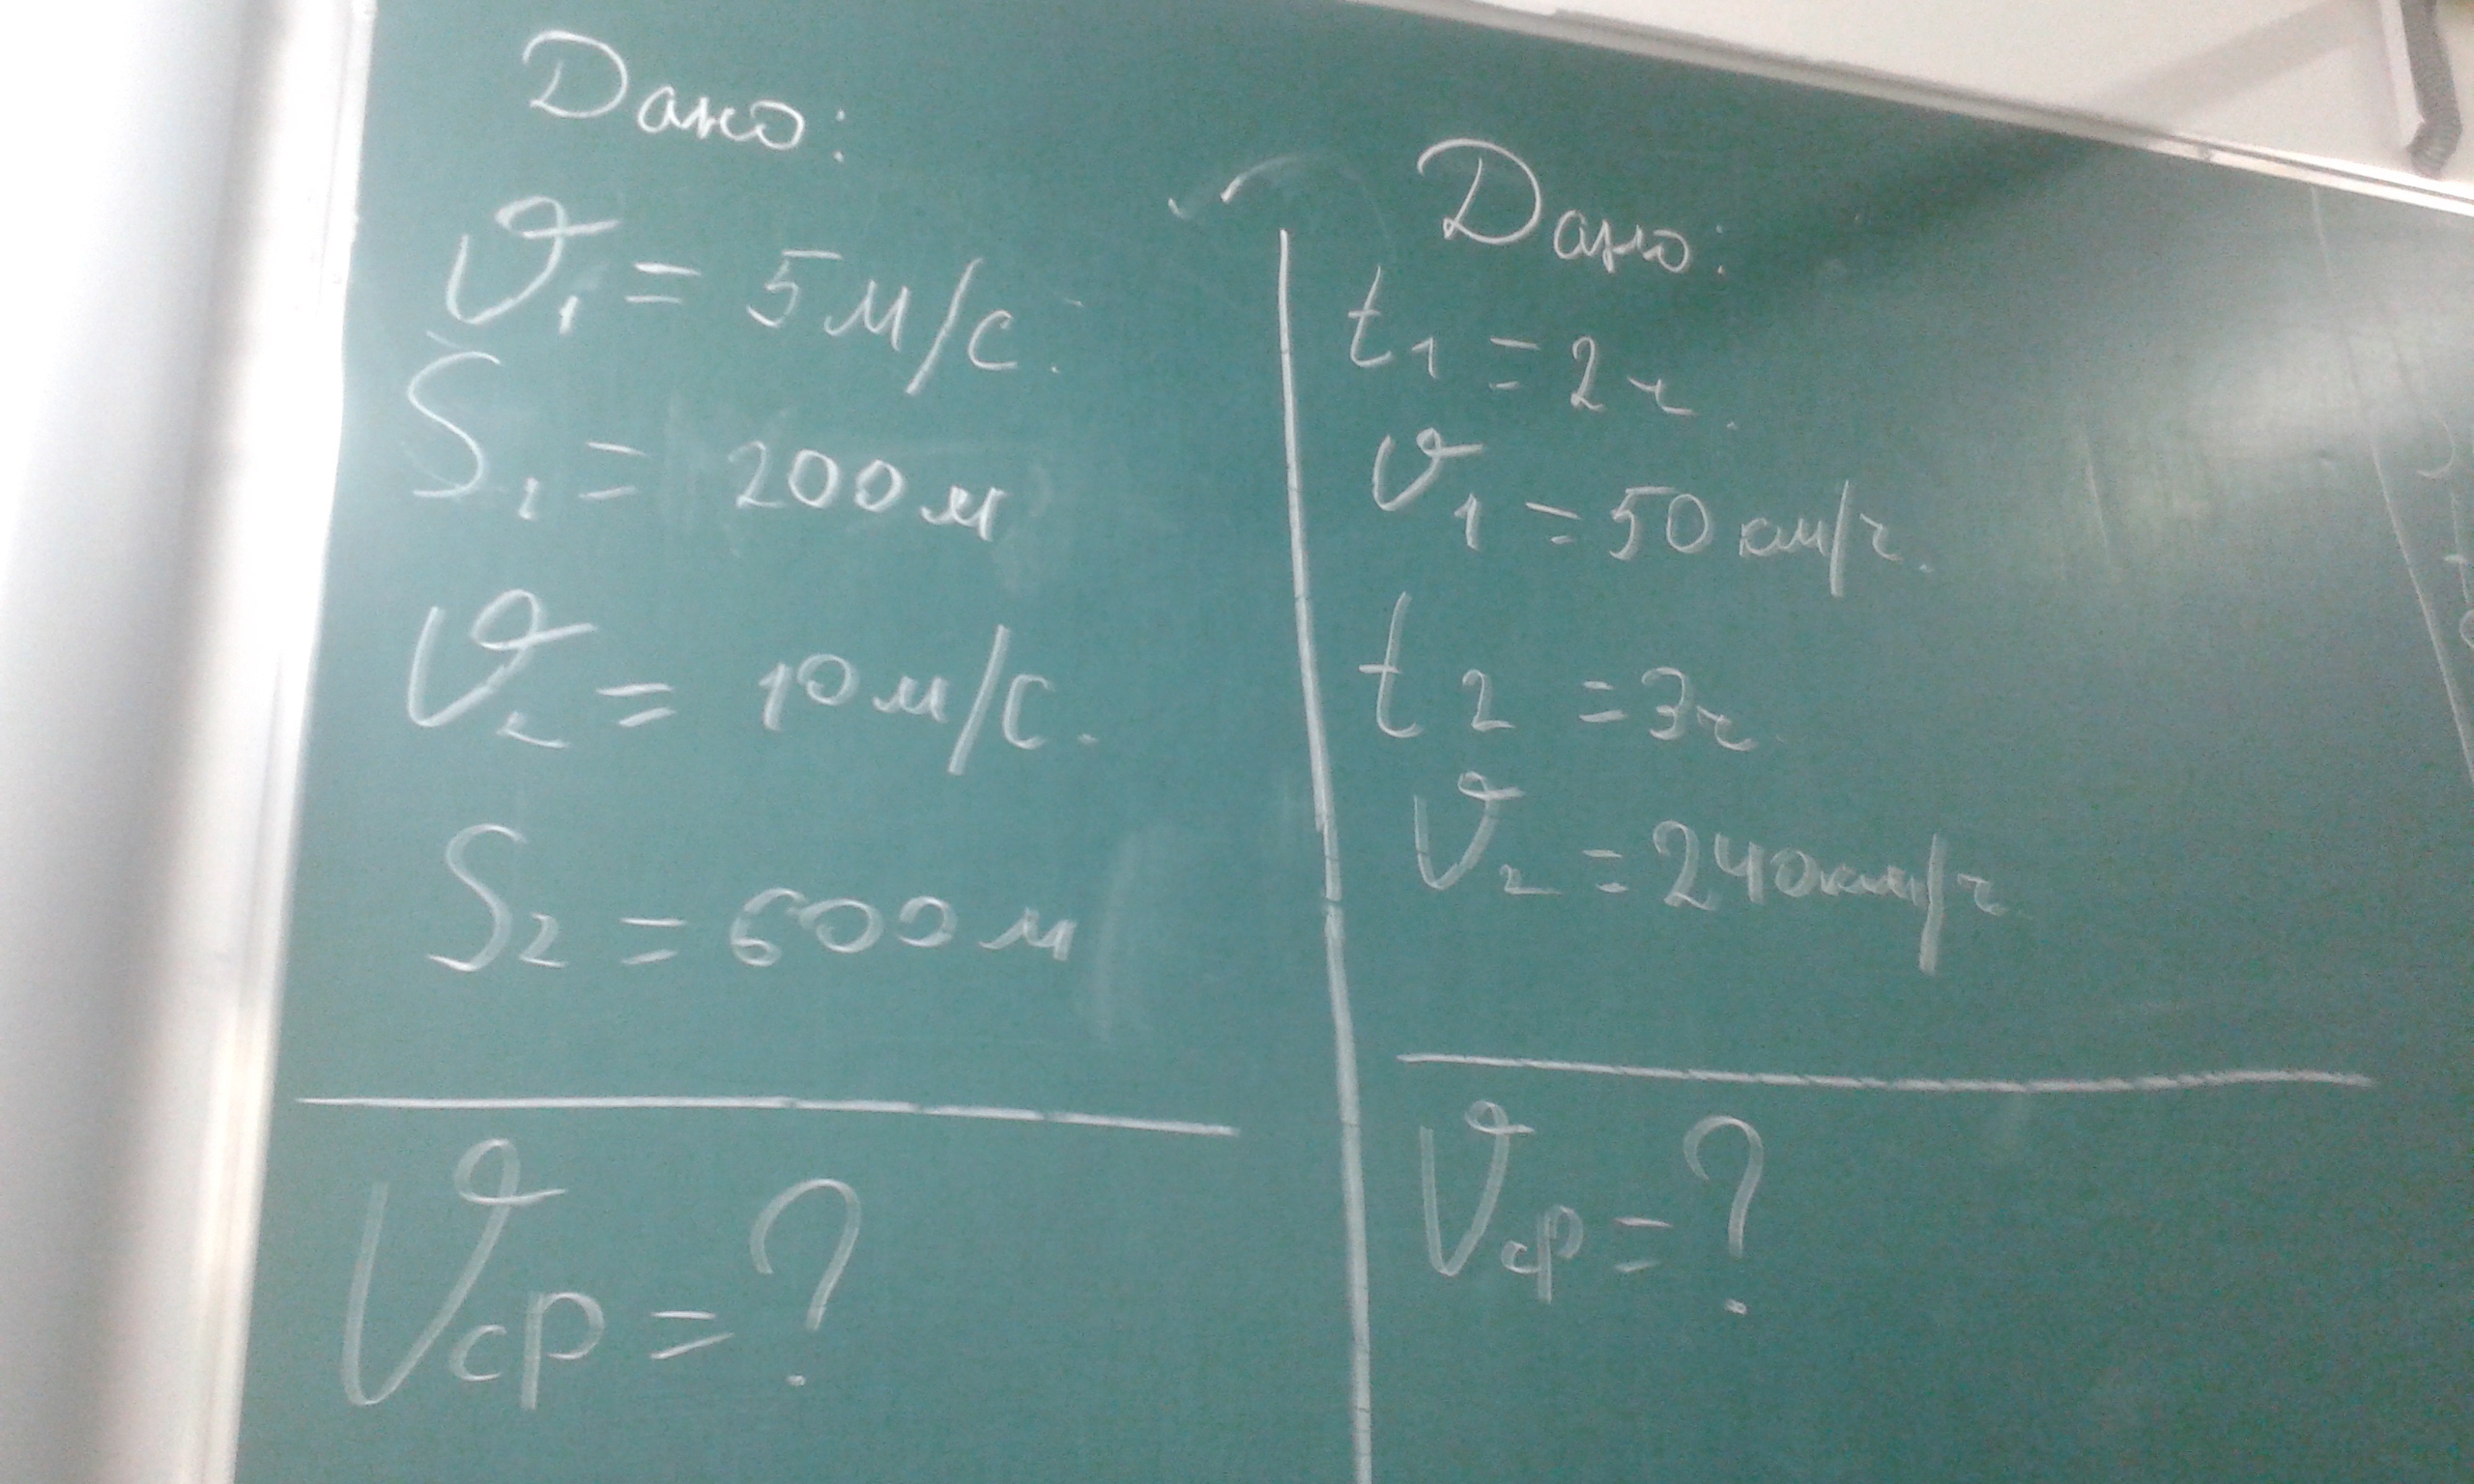 Дано:
υ₁ = 5 м/с.
S₁ = 200 м
υ₂ = 10 м/с.
S₂ = 600 м
υср = ?
Дано:
t₁ = 2ч.
υ₁ = 50 км/ч.
t₂ = 3ч
υ₂ = 240 км/ч
υср = ?